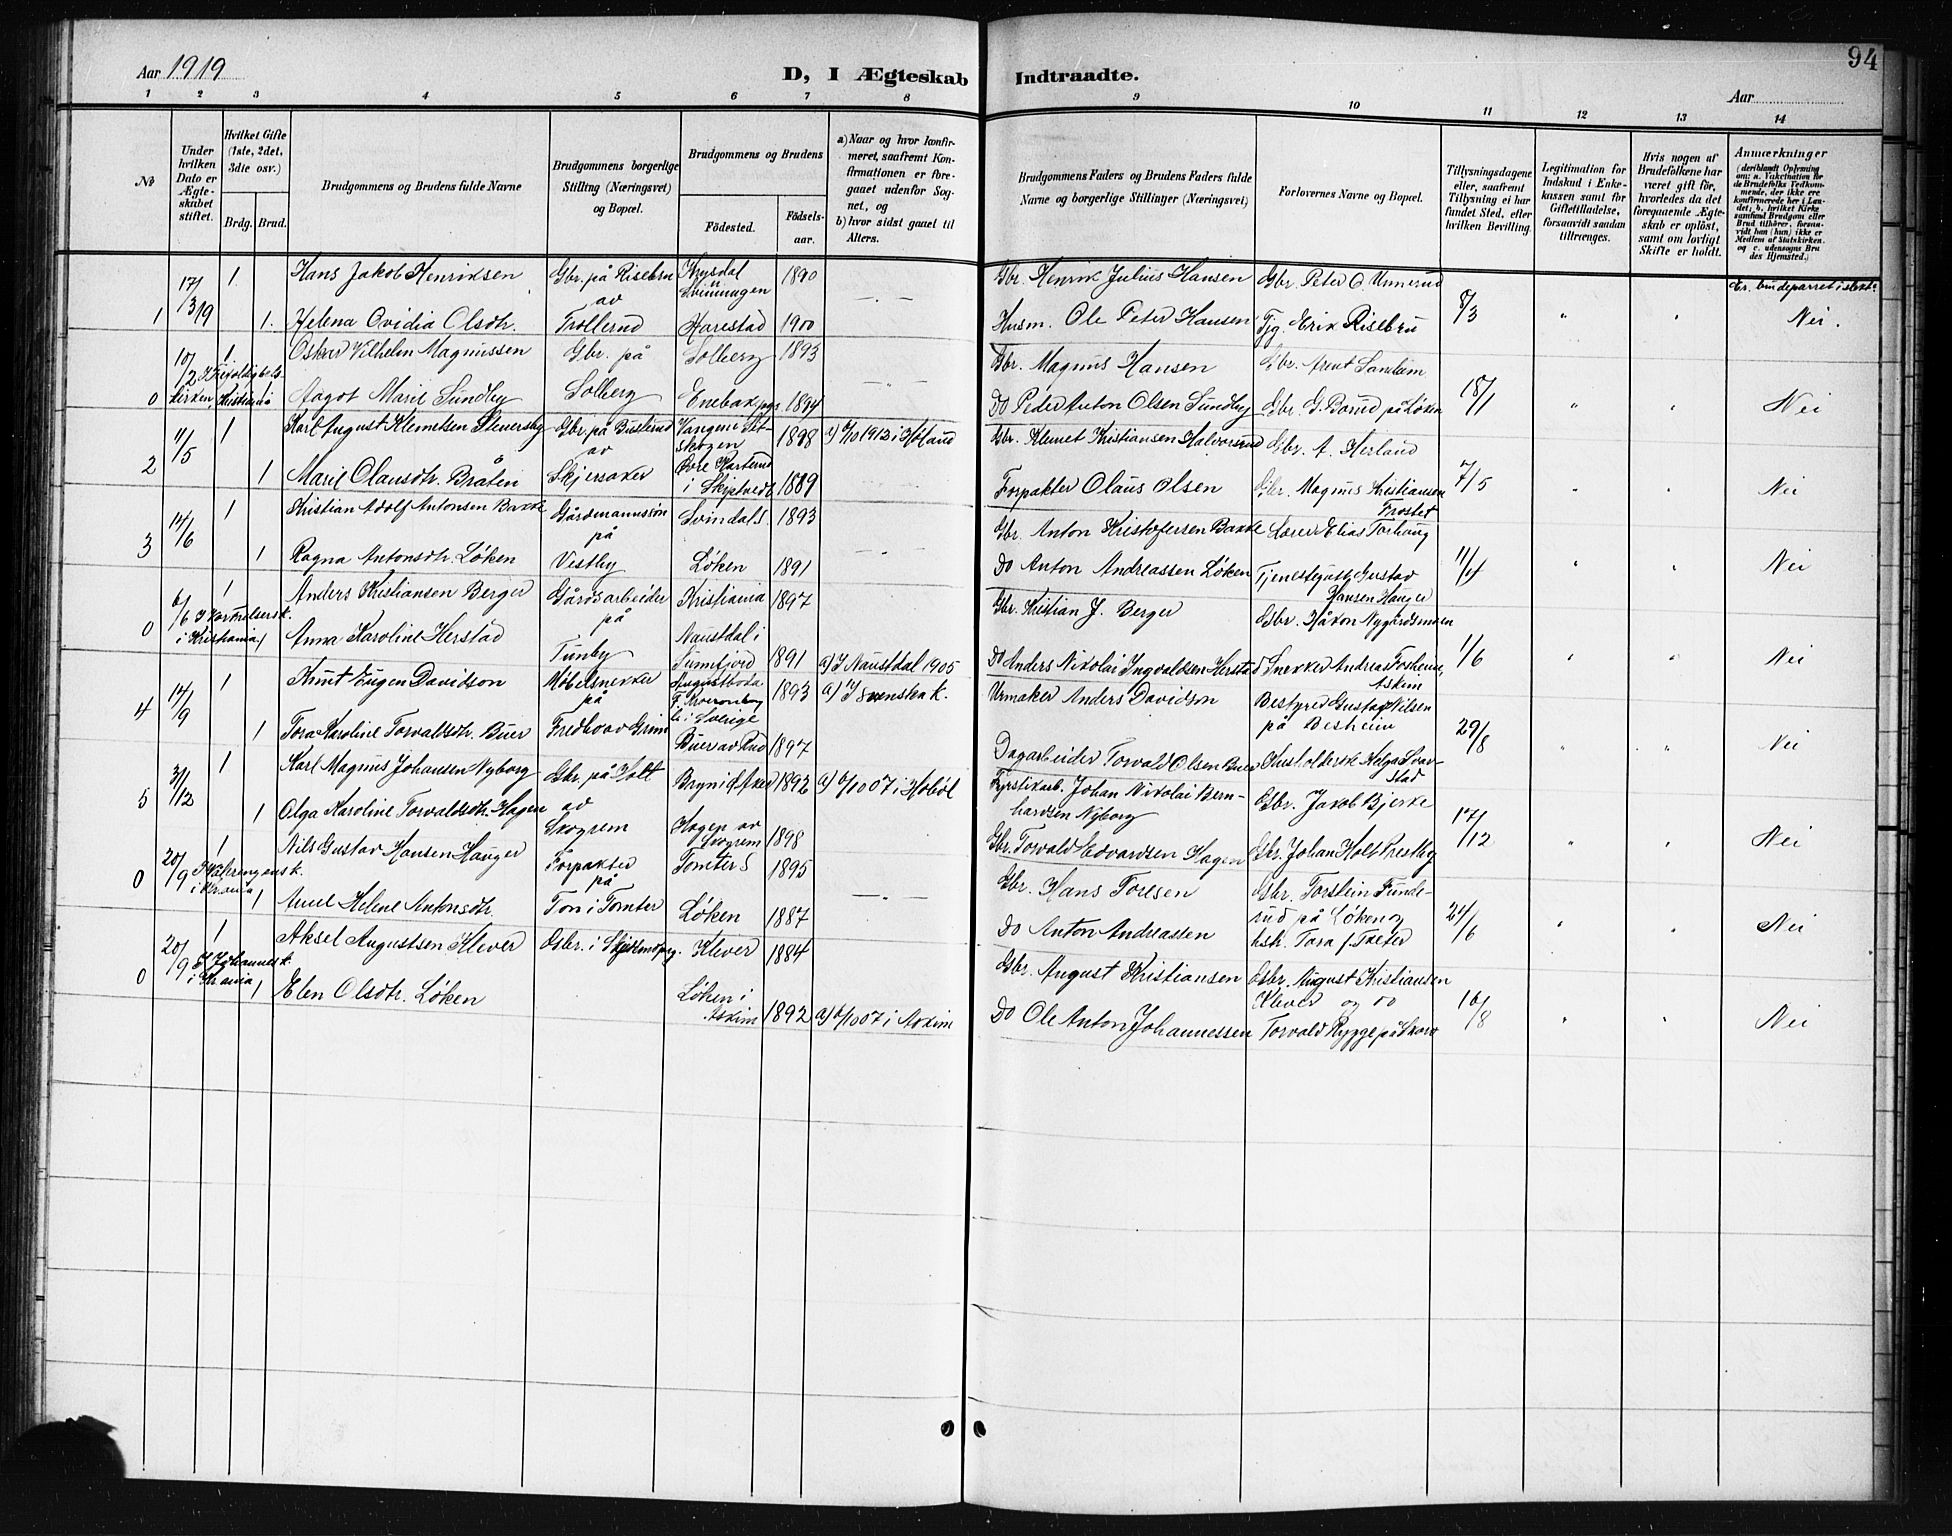 Aar 1919
D, I Ægteskab Indtraadte.
94
Aar
1 2 3 4 5 6 7 8 9 10 11 12 13 14
No
Under hvilken Dato er Ægteskabet stiftet.
Hvilket Gifte (1ste, 2det, 3die osv.)
Brdg. Brud.
Brudgommens og Brudens fulde Navne
Brudgommens borgerlige Stilling (Næringsvei) og Bopæl.
Brudgommens og Brudens
Fødested.
Fødselsaar.
a) Naar og hvor konfirmeret, saafremt Konfirmationen er foregaaet udenfor Sognet, og
b) hvor sidst gaaet til Alters.
Brudgommens Faders og Brudens Faders fulde Navne og borgerlige Stillinger (Næringsvei)
Forlovernes Navne og Bopæl.
Tillysningsdagene eller, saafremt Tillysning ei har fundet Sted, efter hvilken Bevilling.
Legitimation for Indskud i Enkekassen samt for Giftetilladelse, forsaavidt saadan tiltrænges.
Hvis nogen af Brudefolkene har været gift før, hvorledes da det foregaaende Ægteskab er opløst, samt om lovligt Skifte er holdt.
Anmærkninger
(deriblandt Oplysning om: a. Vaccination for de Brudefolks Vedkommende, der ikke ere konfirmerede her i Landet; b. hvilket Kirkesamfund Brudgom eller Brud tilhører, forsaavidt han (hun) ikke er Medlem af Statskirken. og c. udensogns Brudes Hjemsted.)
Er brudeparret i slekt:
1 17/3 19 1 Hans Jakob Henriksen Gbr. på Risebru Krysdal 1890 Gbr. Henrik Julius Hansen Gbr. Peter O Unnerud 8/3
av Svinnagen
1. Helena Ovidia Olsdtr. Trollerud Harestad 1900 Husm. Ole Peter Hansen Tjg. Erik Risebru " " Nei.
0 10/2 1 Oskar Vilhelm Magnussen Gbr. på Solberg 1893 Gbr. Magnus Hansen Gbr. Arnt Sandum 18/1
kirken, Kristiania Aagot Marie Sundby Solberg Enebak pgs. 1894 Do Peder Anton Olsen Sundby Gbr. G. Borud på Løken " " Nei
2 11/5 1 Karl August Klemetsen Stenersby Gbr. på Busterud Vangene 1898 a) 5/10 1913 i Høland Gbr. Klemet Kristiansen Halvorsrud Gbr. A. Herland 7/5
av skogen
1 Marie Olausdtr. Bråten Skjersaker Øvre Karterud i Skiptvedt 1889 Forpakter Olaus Olsen Gbr. Magnus Kristiansen Frostet " " Nei
3 14/6 1 Kristian Adolf Antonsen Bakke Gårdmannssøn Svindal S. 1893 Gbr. Anton Kristofersen Bakke Lærer Elias Torhaug 11/4
på
1 Ragna Antonsdtr. Løken Vestby Løken 1891 Do Anton Andreassen Løken Tjenestegutt Gustad Hansen Hauger " " Nei
0 6/6 1 Anders Kristiansen Berger Gårdsarbeider Kristiania 1897 Gbr. Kristian J. Berger Gbr. Håkon Nygårdsmoen 1/6
på
i Kristiania 1 Anna Karoline Herstad Tunby Naustdal i Sunnfjord 1891 a) I Naustdal 1905 Do Anders Nikolai Ingvaldsen Herstad Snekker Andreas Fosheim, Askim " " Nei
4 14/9 1 Knut Eugen Davidson Møbelsnekker 1893 a) I Svenska k. Urmaker Anders Davidson Bestyrer Gustav Nilsen på Besheim 29/8
på i Sverige
1 Tora Karoline Torvaldsdtr. Buer Fredbo av Grini Buer av Rud 1897 Dagarbeider Torvald Olsen Buer Husholderske Helga Svarstad " " Nei
5 31/12 1 Karl Magnus Johansen Nyborg Gbr. på Holt Bryn i Ø. Aker 1892 a) 6/10 07 i Hobøl Fyrstikarb. Johan Nikolai Bernhardsen Nyborg Gbr. Jakob Bjerke 17/12
av
1 Olga Karoline Torvaldsdtr. Hagen Skogrem Hagen av Skogrem 1898 Gbr. Torvald Edvardsen Hagen Gbr. Johan Holt Prestby " " Nei
0 20/9 1 Nils Gustav Hansen Hauger Forpakter Tomter S 1895 Gbr. Hans Toresen Gbr. Torstein Funderud på Løken og 24/6
I Vålerengens k. på
i Kr.ania 1 Anne Helene Antonsdtr. Ton i Tomter Løken 1887 Do Anton Andreassen hsh. Tora J. Sæter " " Nei
0 20/9 1 Aksel Augustsen Klever Gbr. i Klever 1884 Gbr. August Kristiansen Gbr. August Kristiansen 16/8
I Johannesk. Klever og do
i Kr.ania 1 Elen Olsdtr. Løken Løken i Askim 1892 a) 6/10 07 i Askim Do Ole Anton Johannessen Torvald Rygge på Skorv " " Nei